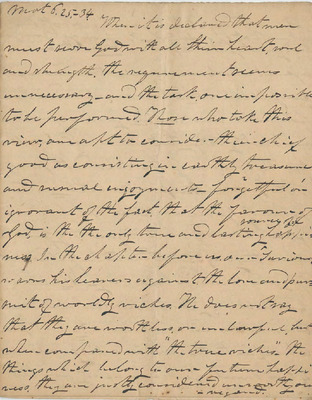 Mat 6. 25-34
When it is declared that men
must serve God with all their heart soul
and strength, the requirement seems
unnecessary and the task one impossible
to be performed. Those who take this
view, are apt to consider their chief
good as consisting in earthly treasure
and sensual enjoyments forgetful or
ignorant of the fact that the favour of
God, is the the only true and lasting happi
ness In the chapter before us our Saviour
warns his hearers against the love and pur
suit of worldly riches He does not say
that they are worthless or but
when compared with "the true riches" the
things which belong to our future happi
ness, they are justly considered unworthy our
regard.